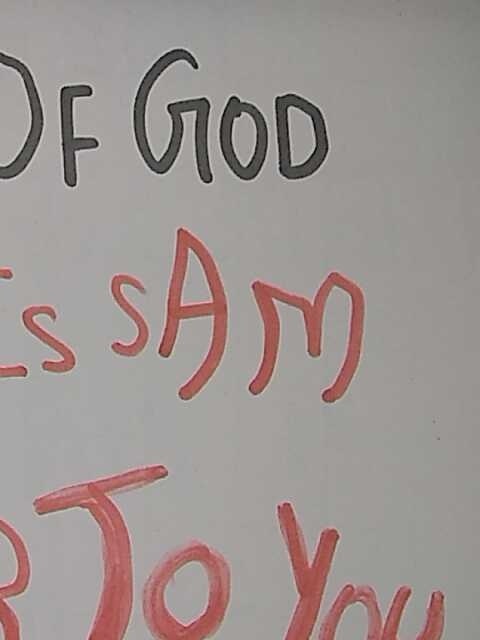 OF GOD
Is sAM
To You